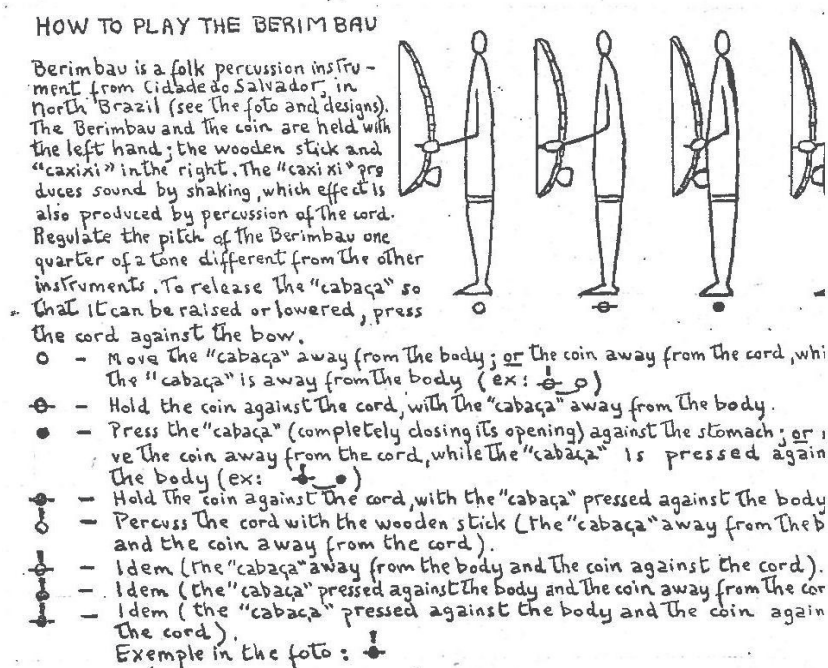 HOW TO PLAY THE BERIMBAU
Berimbau is a folk percussion instru-
ment from Cidade do Salvador, in
North Brazil (see the foto and designs).
The Berimbau and the coin are held with
the left hand; the wooden stick and
"caxixi" in the right. The "caxixi" pro
duces sound by shaking, which effect is
also produced by percussion of the cord.
Regulate the pitch of the Berimbau one
quarter of a tone different from the other
instruments. To release the "cabaça" so
that it can be raised or lowered, press
the cord against the bow.
- Move the "cabaça" away from the body; or the coin away from the cord, whi
the "cabaça" is away from the body (ex: )
- Hold the coin against the cord, with the "cabaça" away from the body.
- Press the "cabaça" (completely closing its opening) against the stomach; or
ve the coin away from the cord, while the "cabaça" is pressed again
the body (ex: )
- Hold the coin against the cord, with the "cabaça" pressed against the body
- Percuss the cord with the wooden stick (the "cabaça" away from the b
and the coin away from the cord).
- Idem (the "cabaça" away from the body and the coin against the cord).
- Idem (the "cabaça" pressed against the body and the coin away from the cor
- Idem (the "cabaça" pressed against the body and the coin again
the cord).
Exemple in the foto: